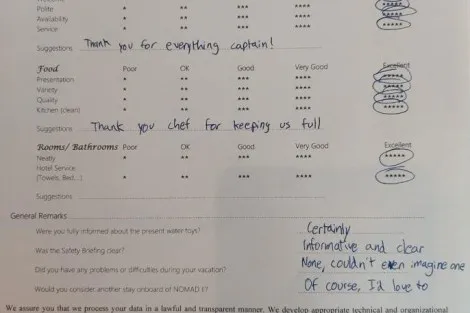 Polite * ** *** **** *****
Availability * ** *** **** *****
Service * ** *** **** *****
Suggestions Thank you for everything captain!
Food Poor OK Good Very Good Excellent
Presentation * ** *** **** *****
Variety * ** *** **** *****
Quality * ** *** **** *****
Kitchen (clean) * ** *** **** *****
Suggestions Thank you chef for keeping us full
Rooms/ Bathrooms Poor OK Good Very Good Excellent
Neatly * ** *** **** *****
Hotel Service
(Towels, Bed...) * ** *** **** *****
Suggestions
General Remarks
Were you fully informed about the present water toys? Certainly
Was the Safety Briefing clear? Informative and clear
Did you have any problems or difficulties during your vacation? None, couldn't even imagine one
Would you consider another stay onboard of NOMAD I? Of course, I'd love to
We assure you that we process your data in a lawful and transparent manner. We develop appropriate technical and organizational